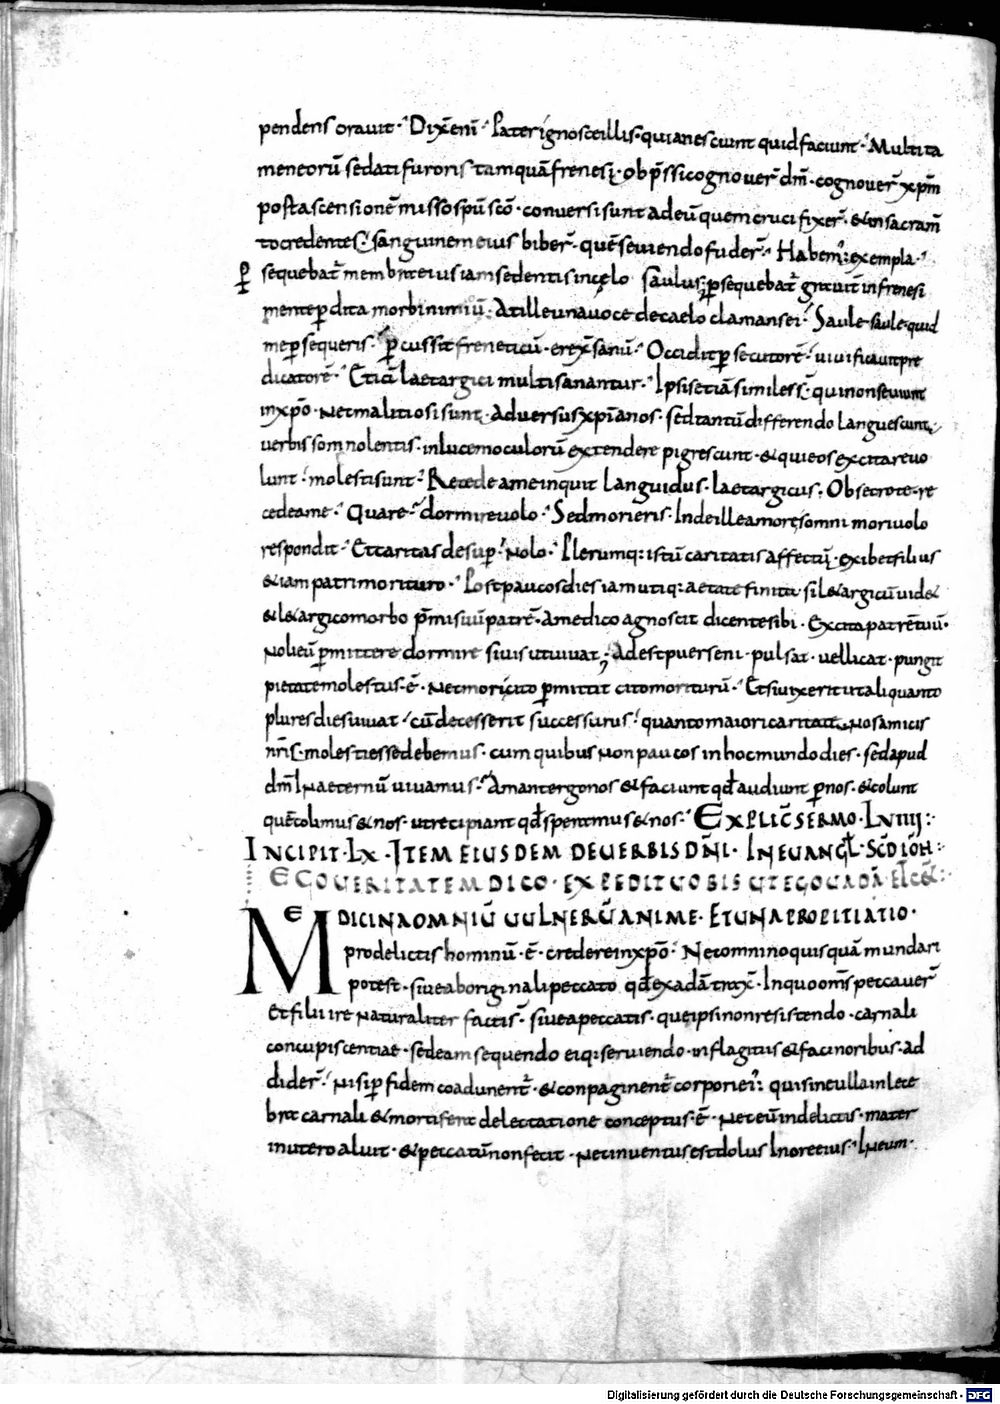 pendens orauit · Dix̄ enī · Pater ignosce illis · quia nesciunt quid faciunt · Multi ta
men eorū sedati furoris tamquā frenesi · obp̄ssi cognouer̄ dm̄ · cognouer̄ xp̄m
post ascensionē misso sp̄u sc̄o · conuersi sunt ad eū quem cruci fixer̄ · & in sacram̄
to credentes · sanguinem eius biber̄ · quē seuiendo fuder̄ · Habem; exempla ·
ꝑ
sequebat̄ membra eius iam sedentis in cęlo saulus; ꝑsequebat̄ grauit̄ in frenesi
mente ꝑdita morbi nimiū · At ille una uoce de caelo clamans ei · Saule saule quid
me ꝑsequeris · ꝑcussit freneticū · erex̄ sanū · Occidit ꝑsecutorē · uiuificauit pre
dicatorē · Etiā laetargici multi sanantur · Ipsis etiā similes s̄ · qui non seuiunt
in xp̄o · Nec malitiosi sunt · aduersus xp̄ianos · sed tantū differendo languescunt
uerbis somnolentis · in lucem oculorū extendere pigrescunt · & qui eos excitare uo
lunt · molesti sunt · Recede a me inquit languidus · laetargicus · Obsecro te re
cede a me · Quare · dormire uolo · Sed morieris · Inde ille amore somni mori uolo
respondit · Et caritas desuꝑ · Nolo · Plerumq: istū caritatis affectū · exibet filius
& iam patri morituro · Post paucos dies iam utiq: aetate finita si l&argicū uid&
& l&argico morbo p̄mi suū patrē · a medico agnoscit dicente sibi · Excita patrē tuū ·
Noli eū ꝑmittere dormire si uis ut uiuat; Adest puer seni · pulsat · uellicat · pungit
pietate molestus · ē · Nec mori cito ꝑmittit cito moriturū · Et si uixerit ut aliquanto
plures dies uiuat · cū decesserit successurus · quanto maiori caritate nos amicis
nr̄is · molesti esse debemus · cum quibus non paucos in hoc mundo dies · sed apud
dm̄ in aeternū uiuamus · Amant ergo nos & faciunt qd̄ audiunt ꝑ nos · & colunt
quē colimus & nos · ut recipiant qd̄ speramus & nos · EXPLIC̄ SERMO · LVIIII:·
INCIPIT · LX · ITEM EIUSDEM DE UERBIS DN̄I · IN EUANGL̄ · SC̄D IOH̄:
EGO UERITATEM DICO · EXPEDIT UOBIS UT EGO UADĀ
MEDICINA OMNIŪ UULNERŪ ANIME · ET UNA PROPITIATIO ·
pro delictis hominū · ē · credere in xp̄o · Nec omnino quisquā mundari
potest · siue ab originali peccato qd̄ ex adā trax̄ · In quo om̄s peccauer̄
Et filii ire naturaliter facti s̄ · siue a peccatis · que ipsi non resistendo · carnali
concupiscentiae · sed eam sequendo ei qi seruiendo · in flagitiis & facinoribus · ad
dider̄ · Nisi ꝑ fidem coadunent̄ · & conpaginent̄ corpori ei: qui sine ulla inlece
bra carnali & mortifera delectatione conceptus · ē · Nec eū in delictis · mater
in utero aluit · & peccatū non fecit · Nec inuentus est dolus in ore eius · In eum ·
Digitalisierung gefördert durch die Deutsche Forschungsgemeinschaft - DFG